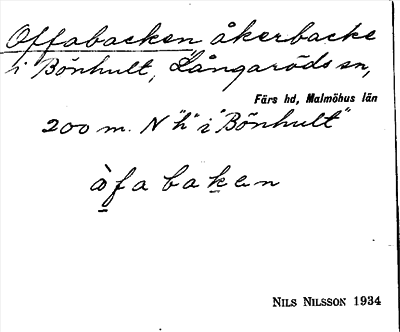 Offabacken åkerbacke
i Bönhult, Långaröds sn,
Färs hd, Malmöhus län
200 m. N "h" i "Bönhult"
àfabaken
NILS NILSSON 1934